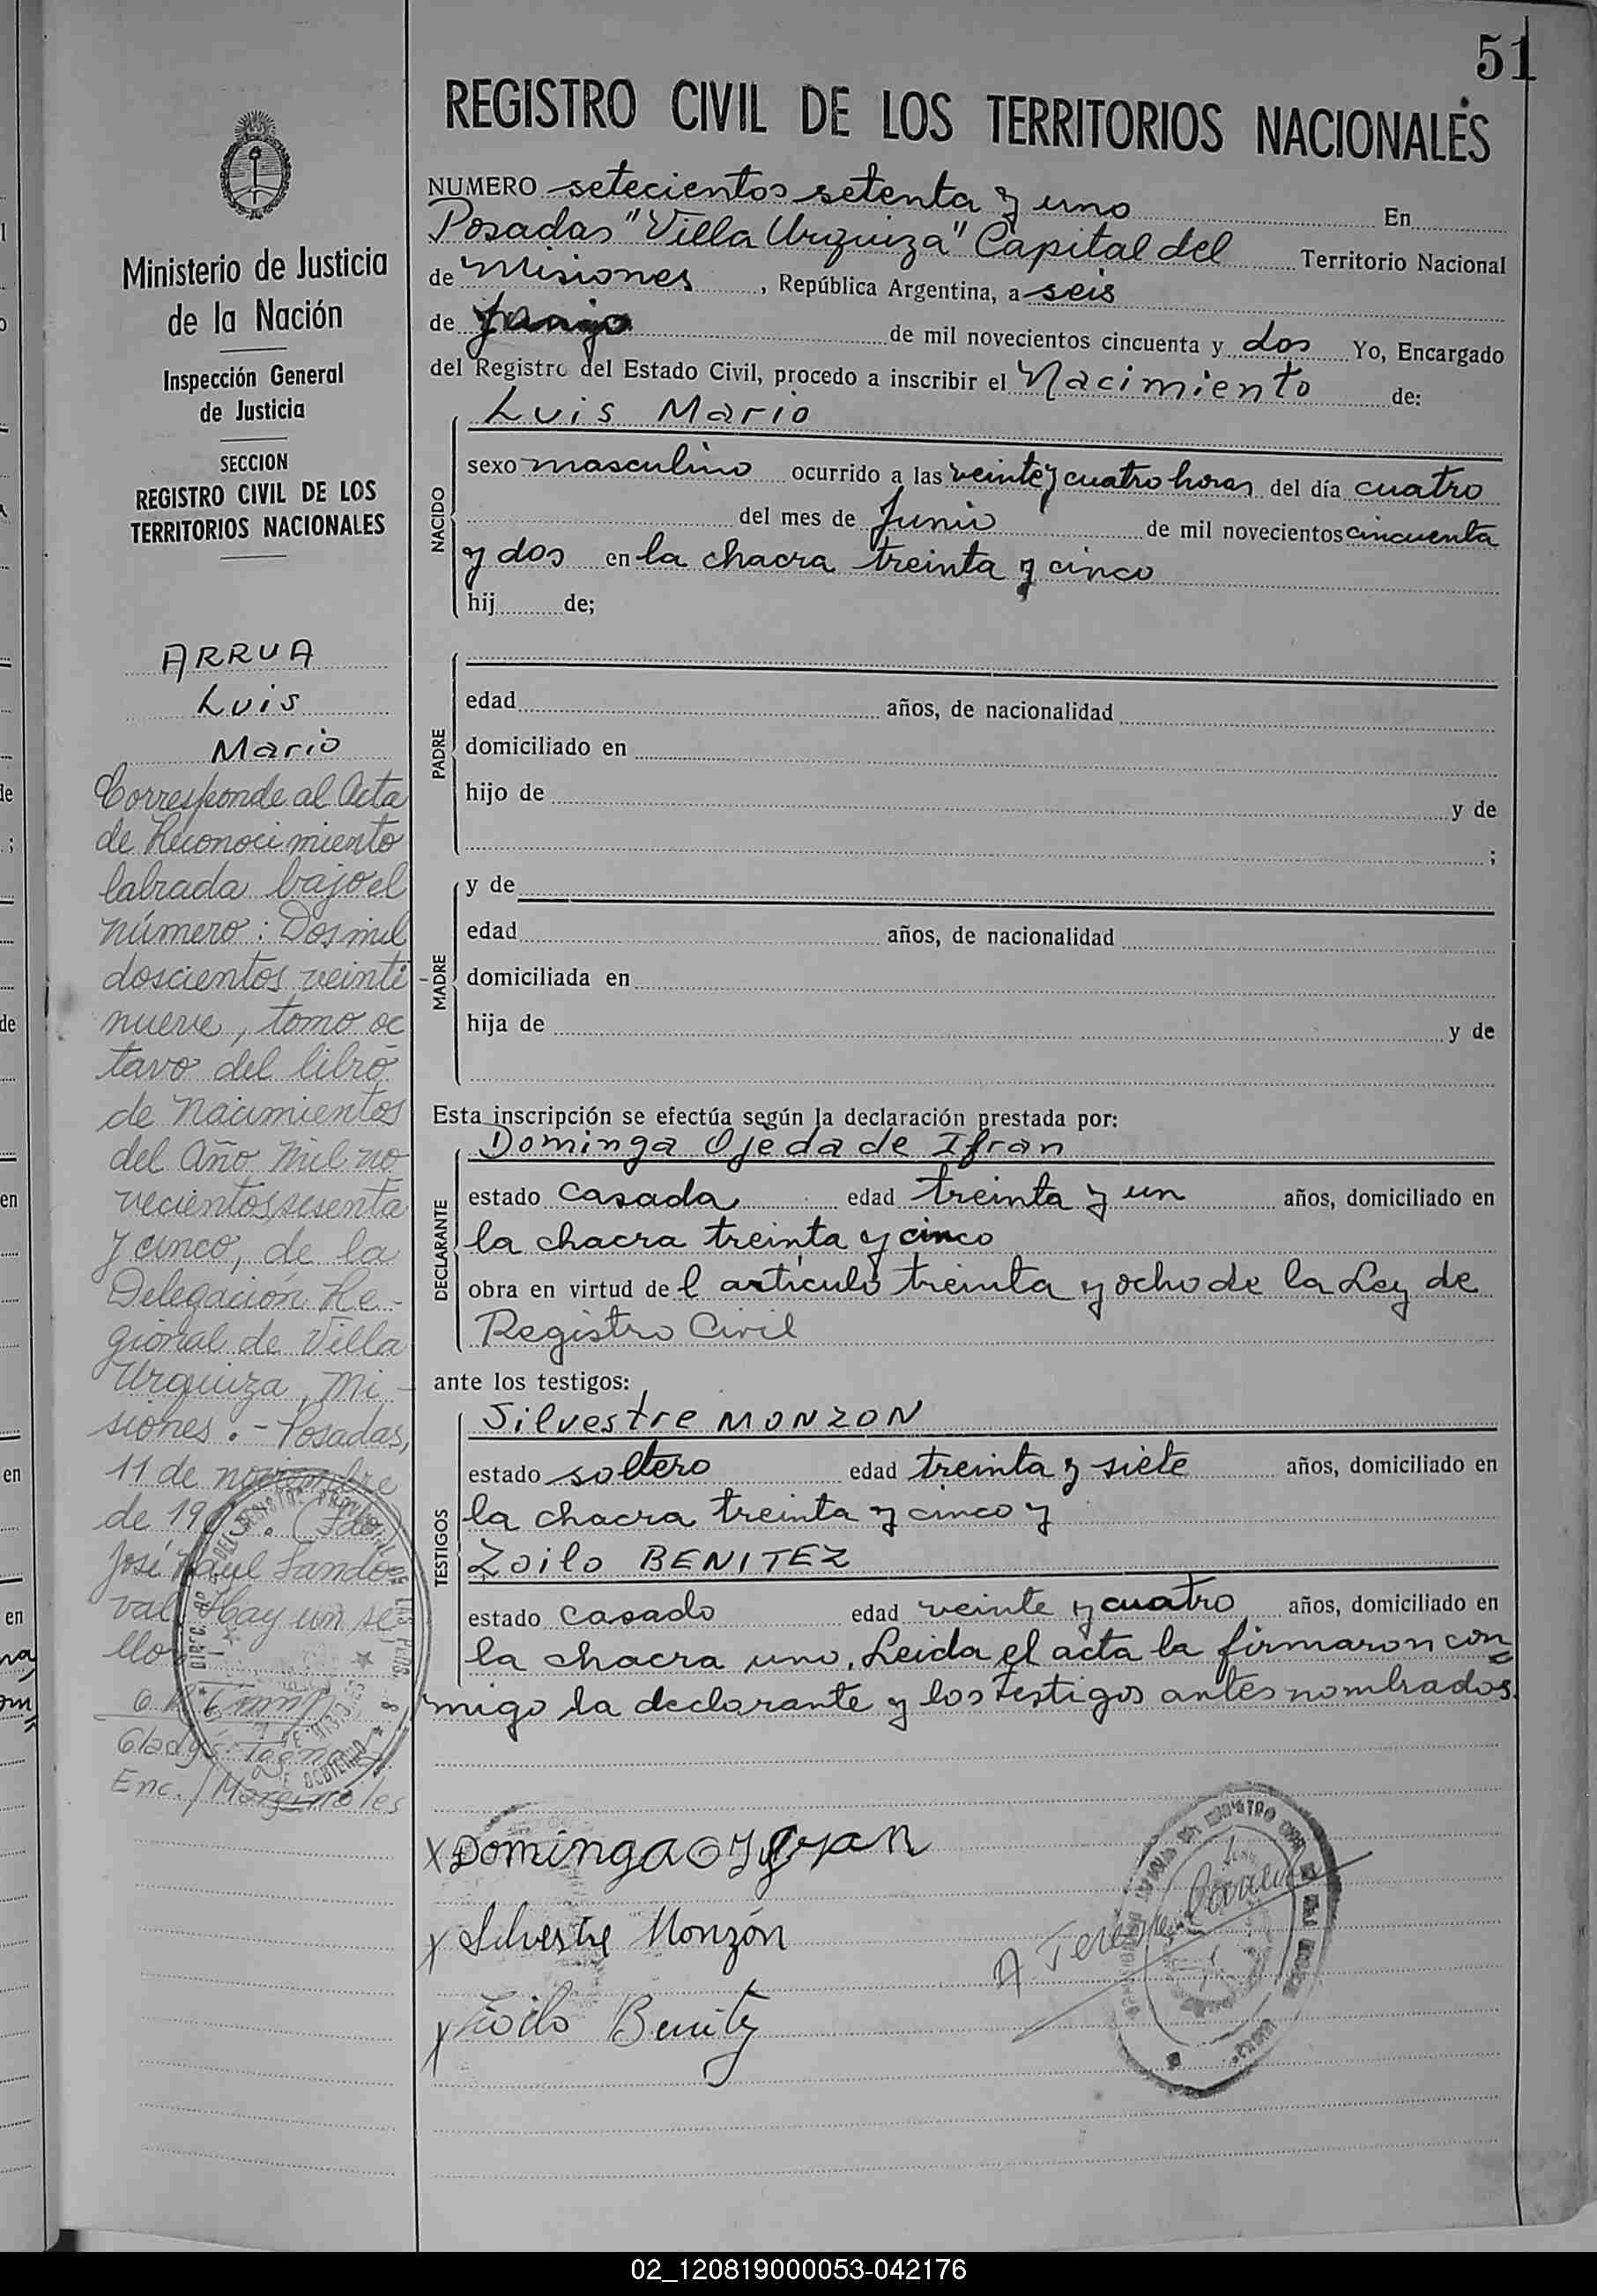 51
REGISTRO CIVIL DE LOS TERRITORIOS NACIONALES
Ministerio de Justicia
de la Nación
Inspección General
de Justicia
SECCION
REGISTRO CIVIL DE LOS
TERRITORIOS NACIONALES
ARRUA
Luis
Mario
Corresponde al Acta
de Reconocimiento
labrada bajo el
número: Dos mil
doscientos veinti-
nueve, tomo oc
tavo del libro
de Nacimientos
del Año Mil no
vecientos sesenta
y cinco, de la
Delegación Re-
gional de Villa
Urquiza, Mi-
siones.- Posadas,
11 de noviembre
de 1965. (Fdo)
José Raul Sando
val. Hay un se
llo.
Gladys
Enc./Marginales
NUMERO setecientos setenta y uno En
Posadas "Villa Urquiza" Capital del Territorio Nacional
de Misiones, República Argentina, a seis
de Junio de mil novecientos cincuenta y dos Yo, Encargado
del Registro del Estado Civil, procedo a inscribir el Nacimiento de:
NACIDO
Luis Mario
sexo masculino ocurrido a las veinte y cuatro horas del día cuatro
del mes de Junio de mil novecientos cincuenta
y dos en la chacra treinta y cinco
hij de;
PADRE
edad años, de nacionalidad
domiciliado en
hijo de y de
;
MADRE
y de
edad años, de nacionalidad
domiciliada en
hija de y de
Esta inscripción se efectúa según la declaración prestada por:
DECLARANTE
Dominga Ojeda de Ifran
estado casada edad treinta y un años, domiciliado en
la chacra treinta y cinco
obra en virtud del artículo treinta y ocho de la Ley de
Registro Civil
ante los testigos:
TESTIGOS
Silvestre MONZON
estado soltero edad treinta y siete años, domiciliado en
la chacra treinta y cinco y
Zoilo BENITEZ
estado casado edad veinte y cuatro años, domiciliado en
la chacra uno. Leida el acta la firmaron con
migo la declarante y los testigos antes nombrados.
X Dominga
X Silvestre Monzón
X Zoilo Benitez
02_120819000053-042176